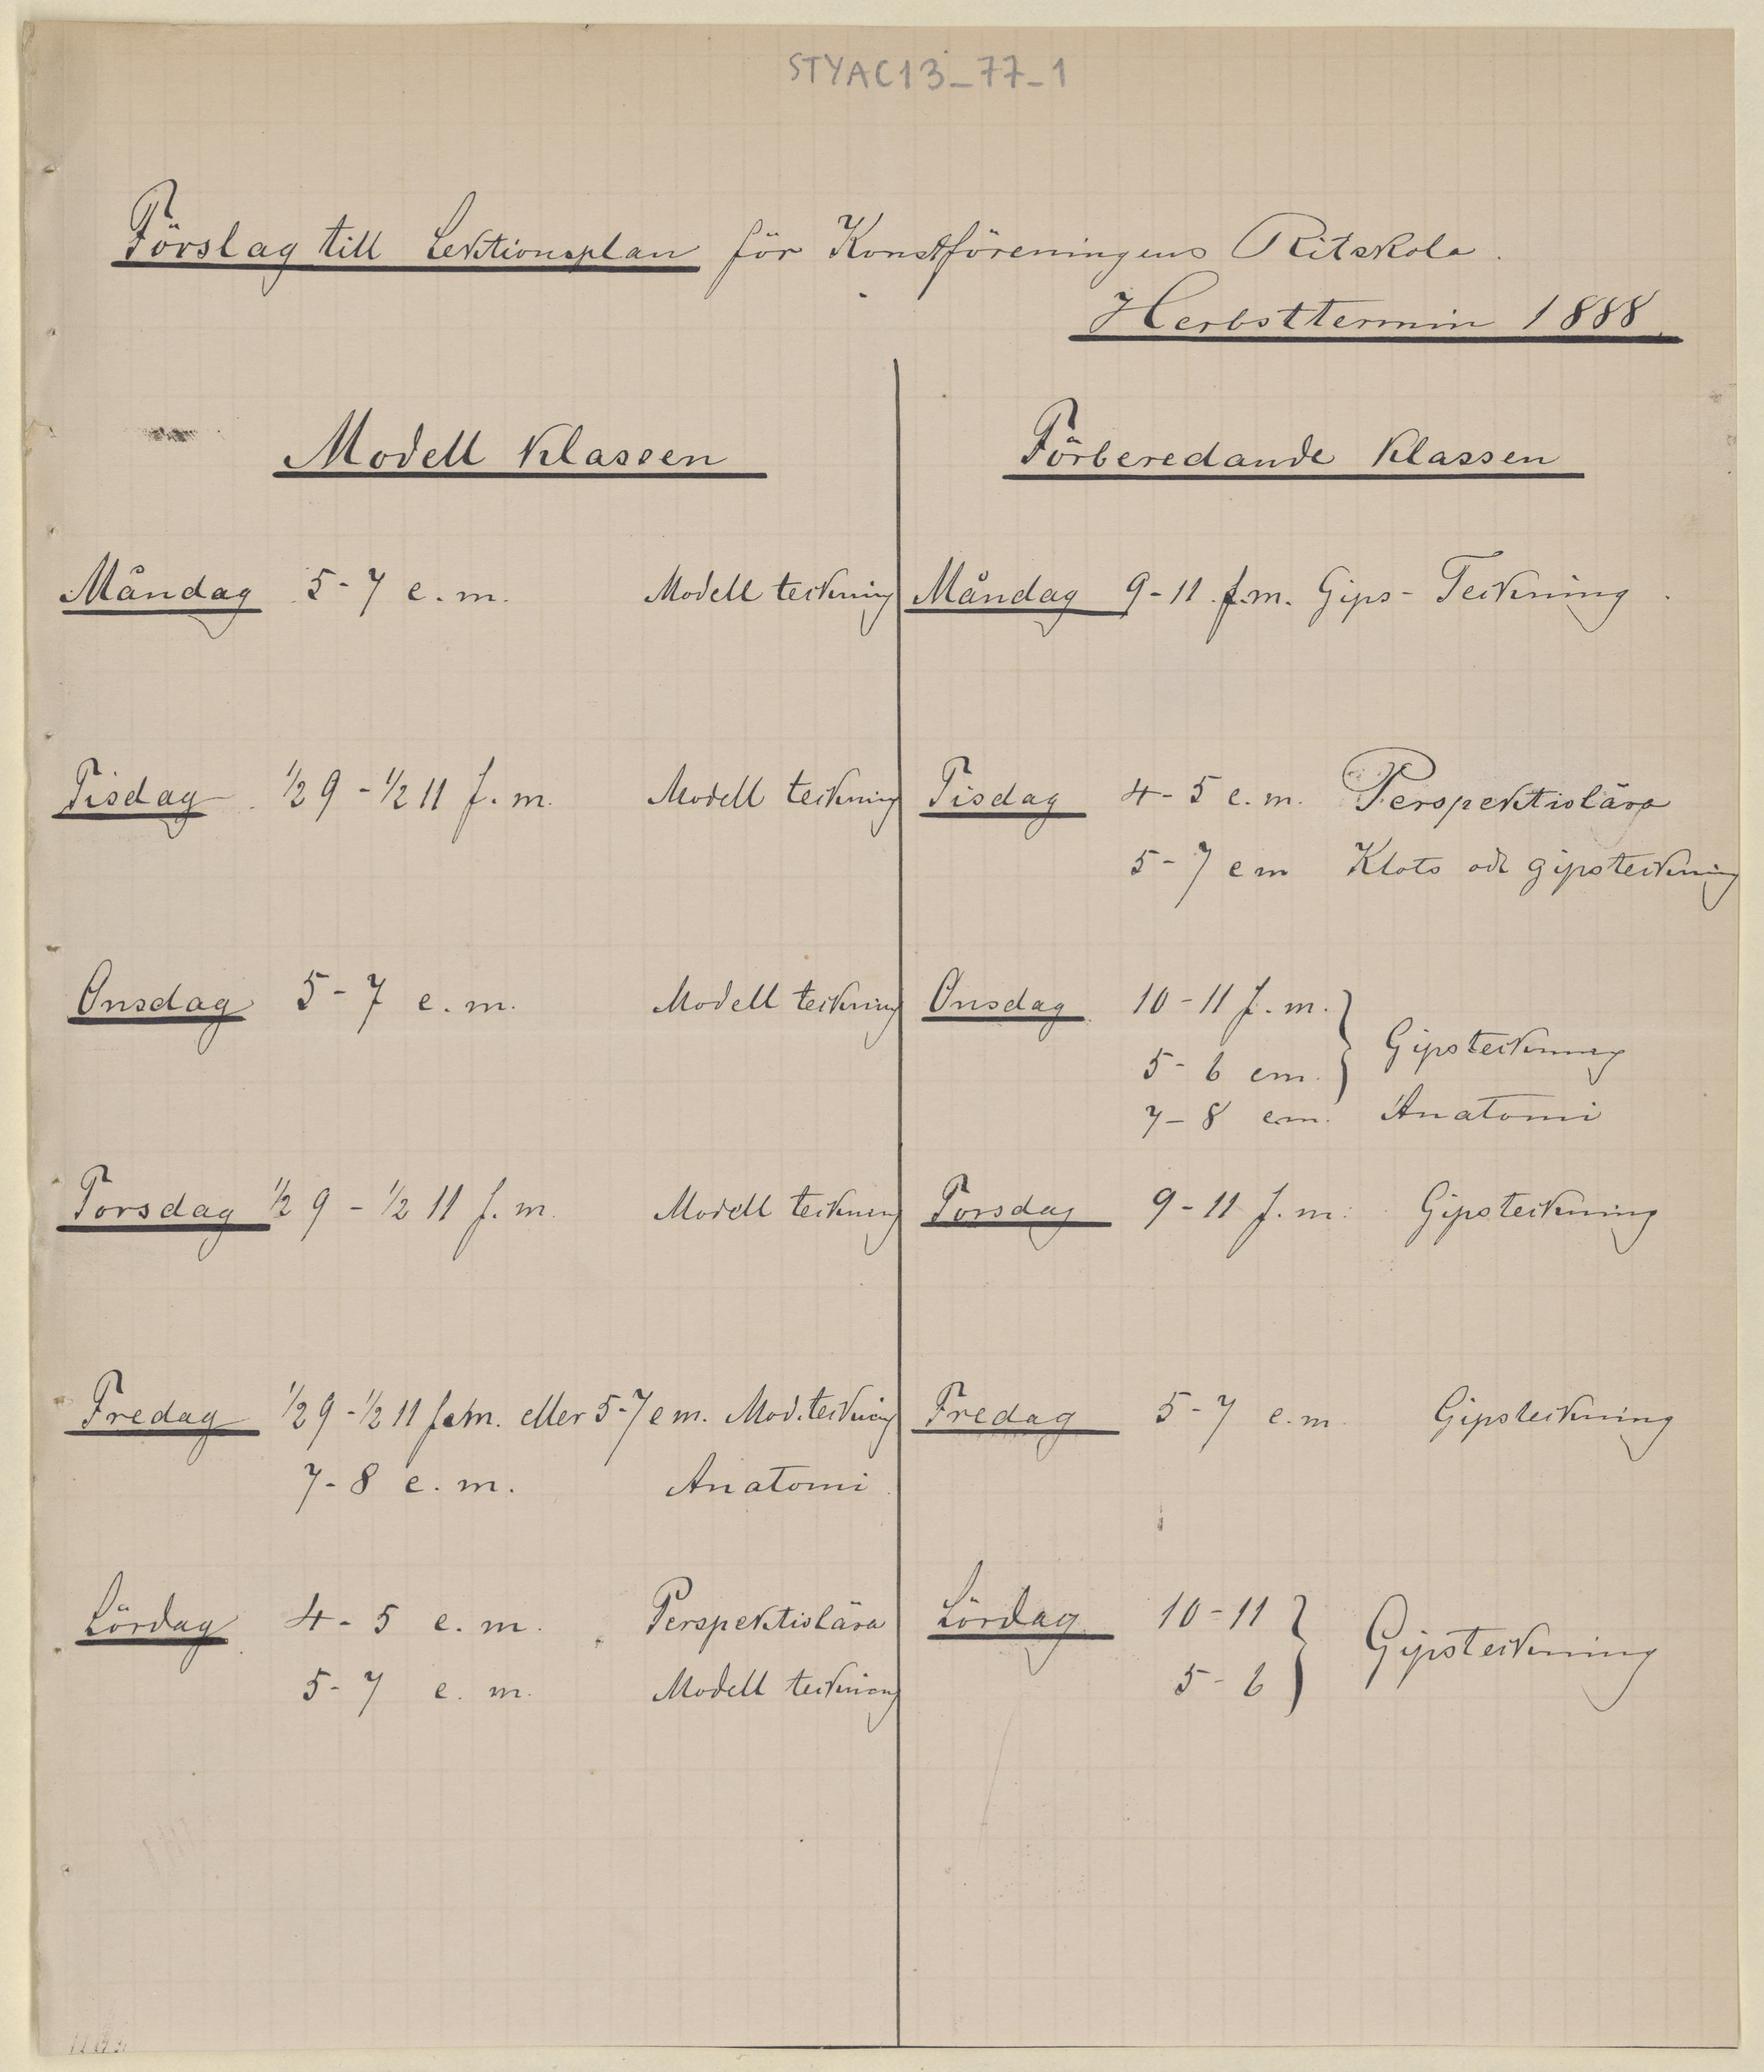 STYAC13_77_1
Förslag till Lektionsplan för Konstföreningens Ritskola.
Herbsttermin 1888
Modell klassen
Måndag 5-7 e.m. Modell teckning
Tisdag ½9-½11 f.m. Modell teckning
Onsdag 5-7 e.m. Modell teckning
Torsdag ½9-½11 f.m. Modell teckning
Fredag ½9-½11 f.m. eller 5-7 em. Mod.teckning
7-8 e.m. Anatomi
Lördag 4-5 e.m. Perspektivlära
5-7 e.m. Modell teckning
Förberedande klassen
Måndag 9-11 f.m. Gips-Teckning.
Tisdag 4-5 e.m. Perspektivlära
5-7 em Klots och gipsteckning
Onsdag 10-11 f.m. } Gipsteckning
5-6 em.
7-8 em. Anatomi
Torsdag 9-11 f.m. Gipsteckning
Fredag 5-7 e.m. Gipsteckning
Lördag 10-11 } Gipsteckning
5-6